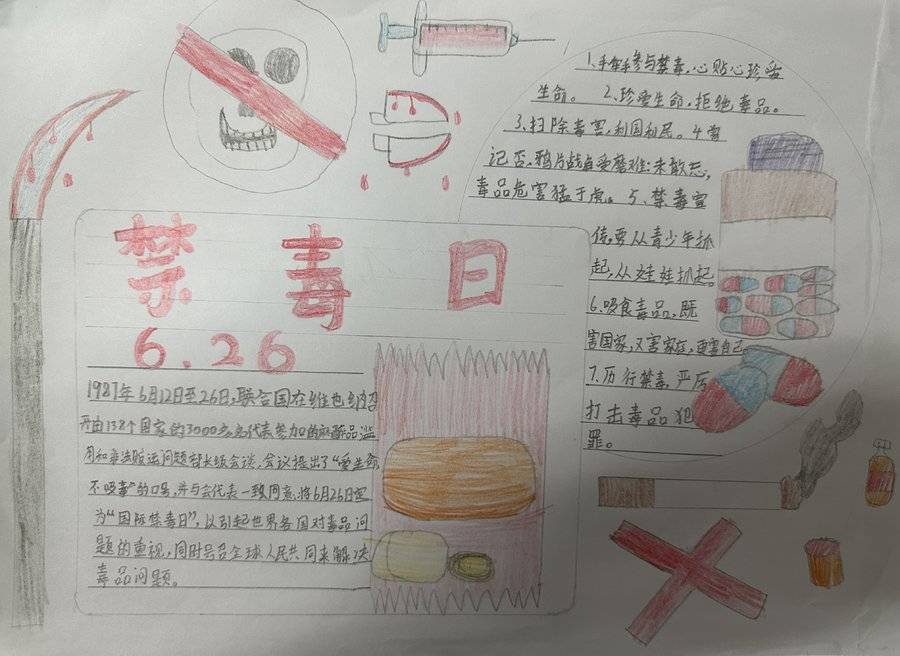 禁毒日
6.26
1987年6月12日至26日,联合国在维也纳召
开由138个国家的3000多名代表参加的麻醉品滥
用和非法贩运问题部长级会议,会议提出了“爱生命
不吸毒”的口号,并与会代表一致同意,将6月26日定
为“国际禁毒日”,以引起世界各国对毒品问
题的重视,同时号召全球人民共同来解决
毒品问题。
1.手牵手参与禁毒,心贴心珍爱
生命。 2.珍爱生命,拒绝毒品。
3.扫除毒害,利国利民。4.需
记否,鸦片战争受磨难:未敢忘,
毒品危害猛于虎。5、禁毒宣
传,要从青少年抓
起,从娃娃抓起。
6.吸食毒品,既
害国家,又害家庭,更害自己
7.厉行禁毒,严厉
打击毒品犯
罪。